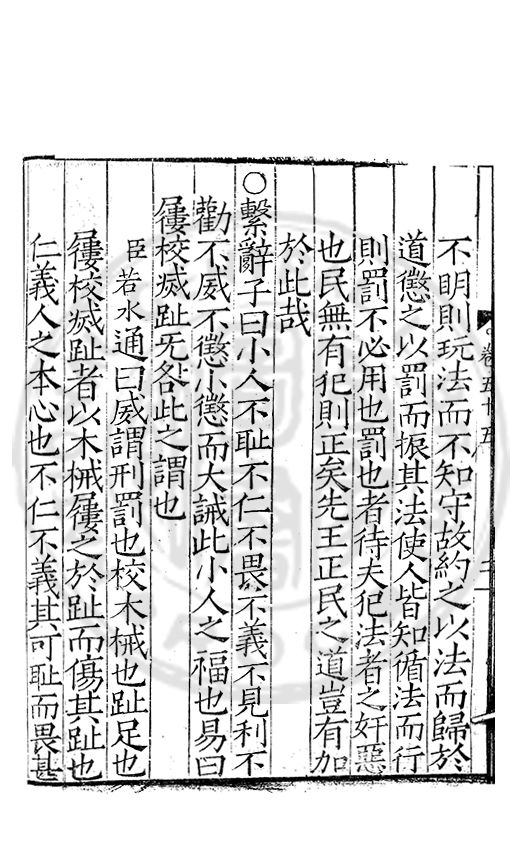 卷五十五
不明則玩法而不知守故約之以法而歸於
道懲之以罰而振其法使人皆知循法而行
則罰不必用也罰也者待夫犯法者之奸惡
也民無有犯則正矣先王正民之道豈有加
於此哉
○繫辭子曰小人不恥不仁不畏不義不見利不
勸不威不懲小懲而大誡此小人之福也易曰
屨校烕趾旡咎此之謂也
臣若水通曰威謂刑罰也校木械也趾足也
屨校烕趾者以木械屨之於趾而傷其趾也
仁義人之本心也不仁不義其可恥而畏甚